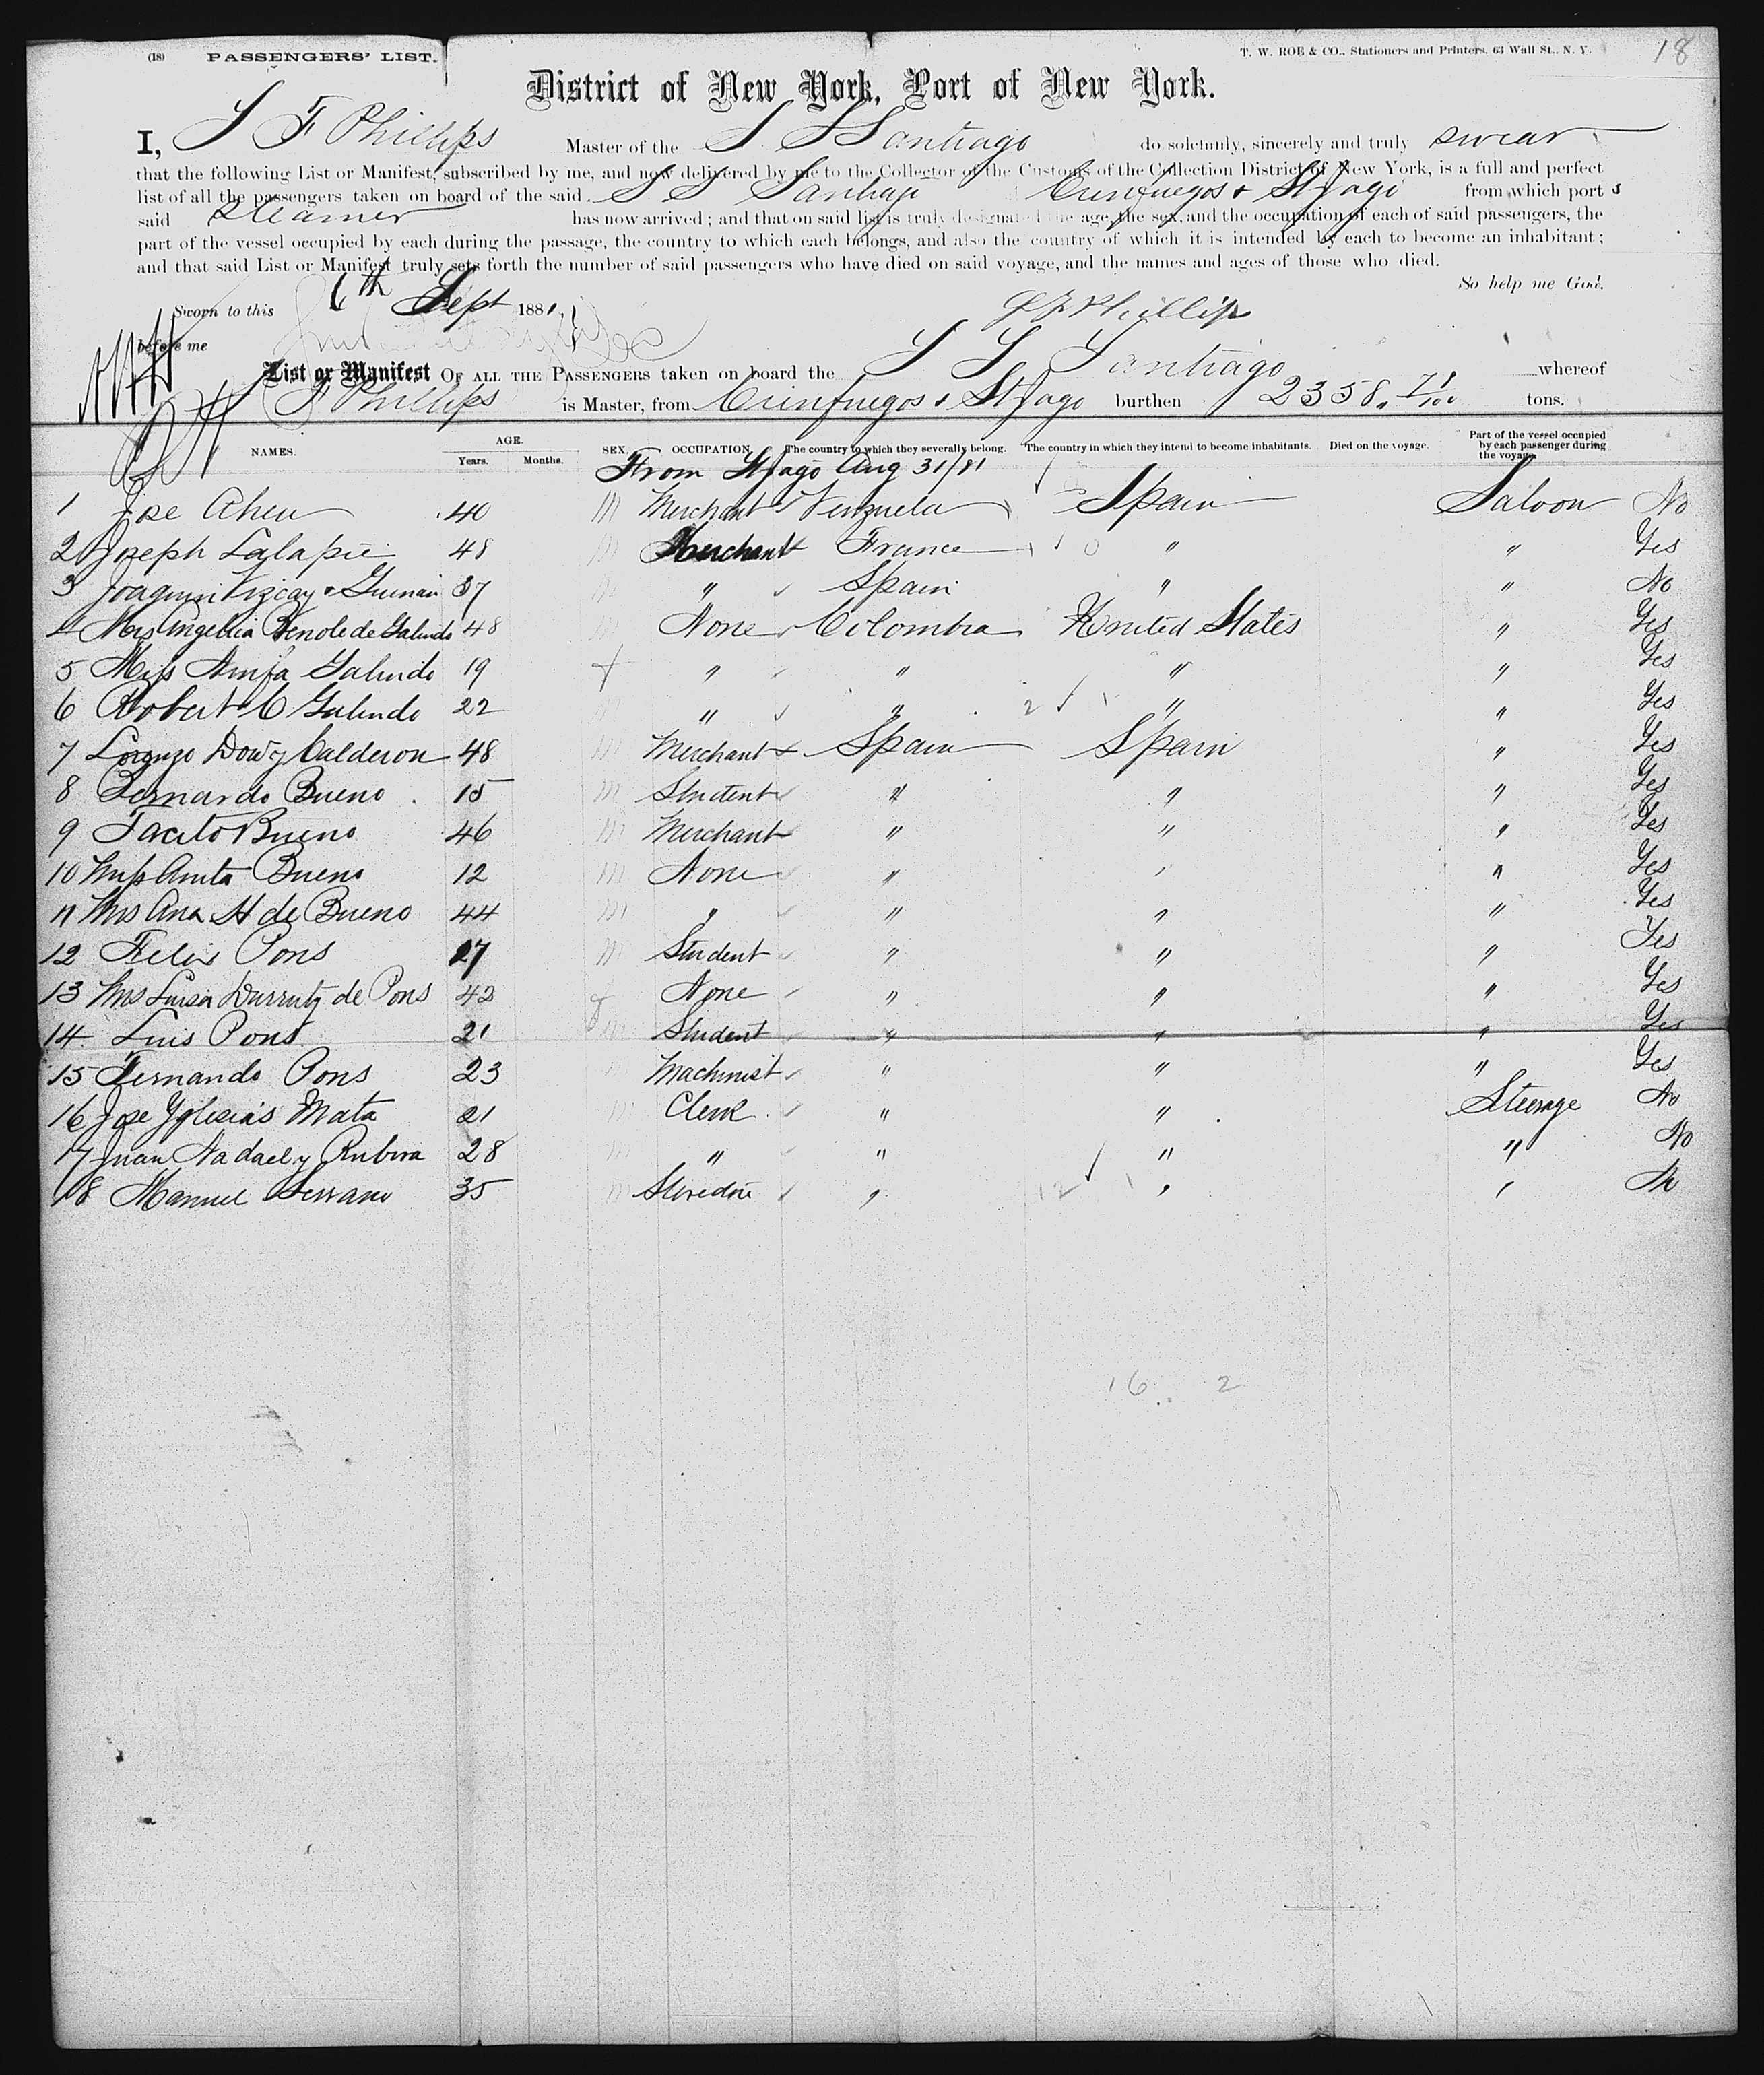 (18) PASSENGERS' LIST. T. W. ROE & CO., Stationers and Printers, 63 Wall St., N. Y. 18
District of New York, Port of New York.
I, S F Phillips Master of the S S Santiago do solemnly, sincerely and truly swear
that the following List or Manifest, subscribed by me, and now delivered by me to the Collector of the Customs of the Collection District of New York, is a full and perfect
list of all the passengers taken on board of the said S S Santiago Cienfuegos & St Jago from which port s
said Steamer has now arrived; and that on said list is truly designated the age, the sex, and the occupation of each of said passengers, the
part of the vessel occupied by each during the passage, the country to which each belongs, and also the country of which it is intended by each to become an inhabitant;
and that said List or Manifest truly sets forth the number of said passengers who have died on said voyage, and the names and ages of those who died.
So help me God.
Sworn to this 6th Sept 1881, S F Phillips
before me
List or Manifest OF ALL THE PASSENGERS taken on board the S S Santiago whereof
F Phillips is Master, from Cienfuegos & St Jago burthen 2358 71/100 tons.
NAMES. AGE. Years. Months. SEX. OCCUPATION. The country to which they severally belong. The country in which they intend to become inhabitants. Died on the voyage. Part of the vessel occupied by each passenger during the voyage.
From St Jago Aug 31/81
1 Jose 40 m Merchant Venzuela Spain Saloon No
2 Joseph Lalapie 48 m Merchant France " " Yes
3 Joaquin Vizcay & 37 m " Spain " " No
4 Mrs Angelica de Galindo 48 m None Colombia United States " Yes
5 Miss Galindo 19 f " " " " Yes
6 Robert C Galindo 22 " " " " Yes
7 Lorenzo Calderon 48 m Merchant Spain Spain " Yes
8 Bernardo Bueno 15 m Student " " " Yes
9 Tacito Bueno 46 m Merchant " " " Yes
10 Miss Anita Bueno 12 m None " " " Yes
11 Mrs Ana H de Bueno 44 m " " " " Yes
12 Felix Pons 27 m Student " " " Yes
13 Mrs Luisa Durruty de Pons 42 f None " " " Yes
14 Luis Pons 21 m Student " " " Yes
15 Fernando Pons 23 Machinist " " " Yes
16 Jose Yglesias Mata 21 m Clerk " " Steerage No
17 Juan Nadael y Rubira 28 m " " " " No
18 Manuel Serrano 35 m Stevedore " 12 " " No
16 2